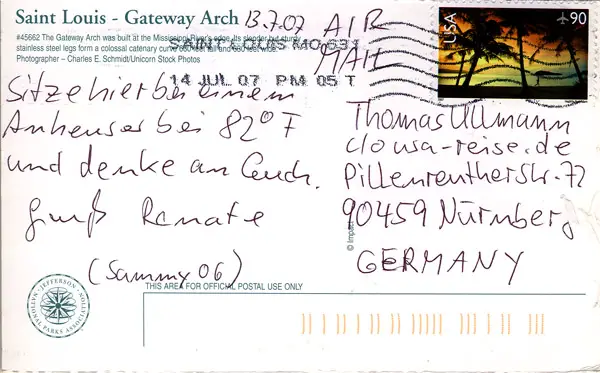 Saint Louis - Gateway Arch
13.7.07 AIR MAIL
#45662 The Gateway Arch was built at the Mississippi River's edge. Its slender but sturdy
stainless steel legs form a colossal catenary curve 630 feet tall and 630 feet wide.
Photographer – Charles E. Schmidt/Unicorn Stock Photos
SAINT LOUIS MO 631
14 JUL 07 PM 05 T
USA
90
Sitze hier bei einem
Anheuser bei 82° F
und denke an Euch.
Gruß Renate
(Sammy 06)
Thomas Ullmann
c/o usa-reise.de
Pillenreutherstr. 72
90459 Nürnberg
GERMANY
© Impact
JEFFERSON NATIONAL PARKS ASSOCIATION
THIS AREA FOR OFFICIAL POSTAL USE ONLY